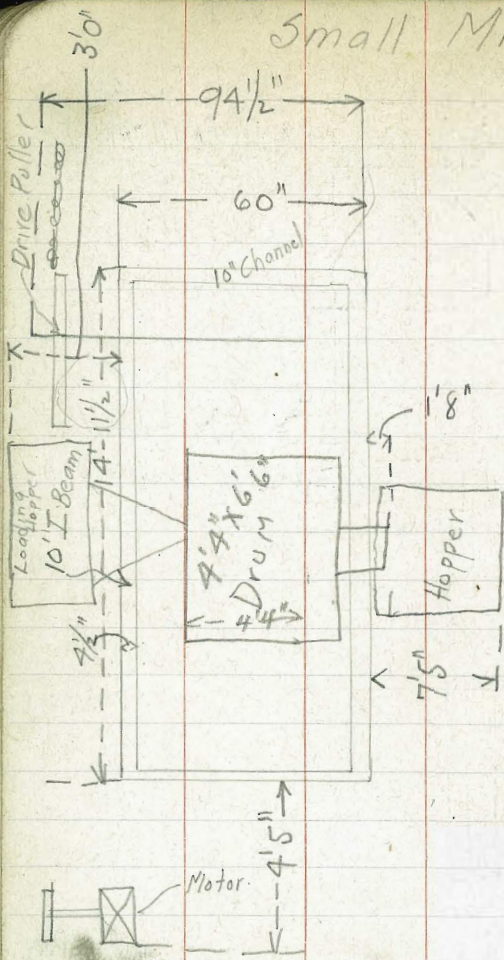 Small
3'0"
94½"
Drive Puller
60"
10" Channel
14'-11½"
1'8"
Loading Hopper
10' I Beam
4'4" x 6' 6"
Drum
4'4"
Hopper
4½"
7'5"
4'5"
Motor